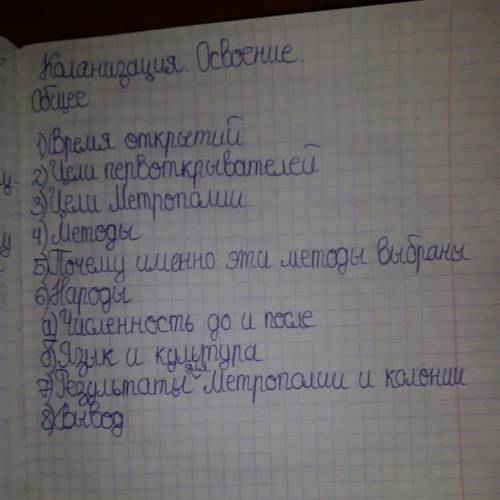 Коланизация. Освоение.
Общее
1) Время открытий
2) Цели первоткрывателей
3) Цели Метрополии
4) Методы
5) Почему именно эти методы выбраны
6) Народы
а) Численность до и после
б) Язык и культура
7) Результаты для Метрополии и колонии
8) Вывод